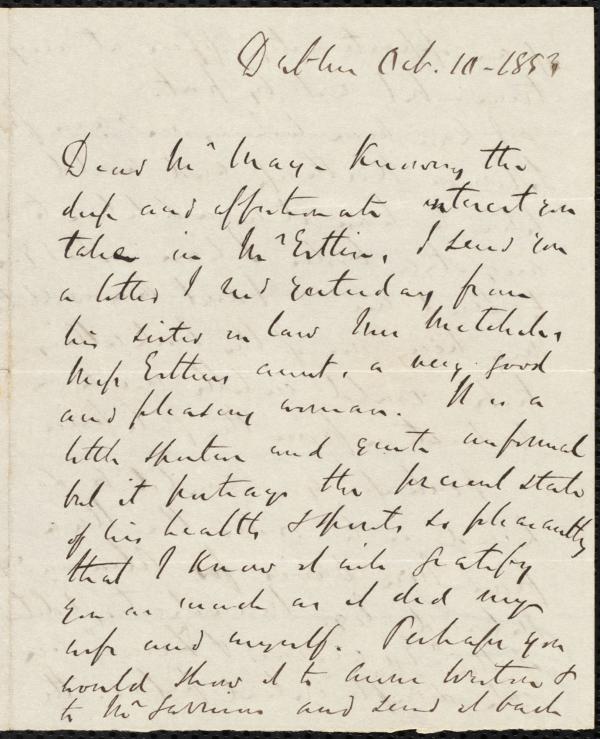 Dublin Oct. 10 - 1853
Dear Mr May - Knowing the
deep and affectionate interest you
take in Mr Estlin, I send you
a letter I recd yesterday from
his sister in law Miss Michell,
Miss Estlin's aunt, a very good
and pleasing woman. It is a
little and quite informal
but it portrays the present state
of his health & spirits so pleasantly
that I know it will gratify
you as much as it did my
wife and myself. Perhaps you
would show it to Anne Weston &
to Mr Garrison and send it back